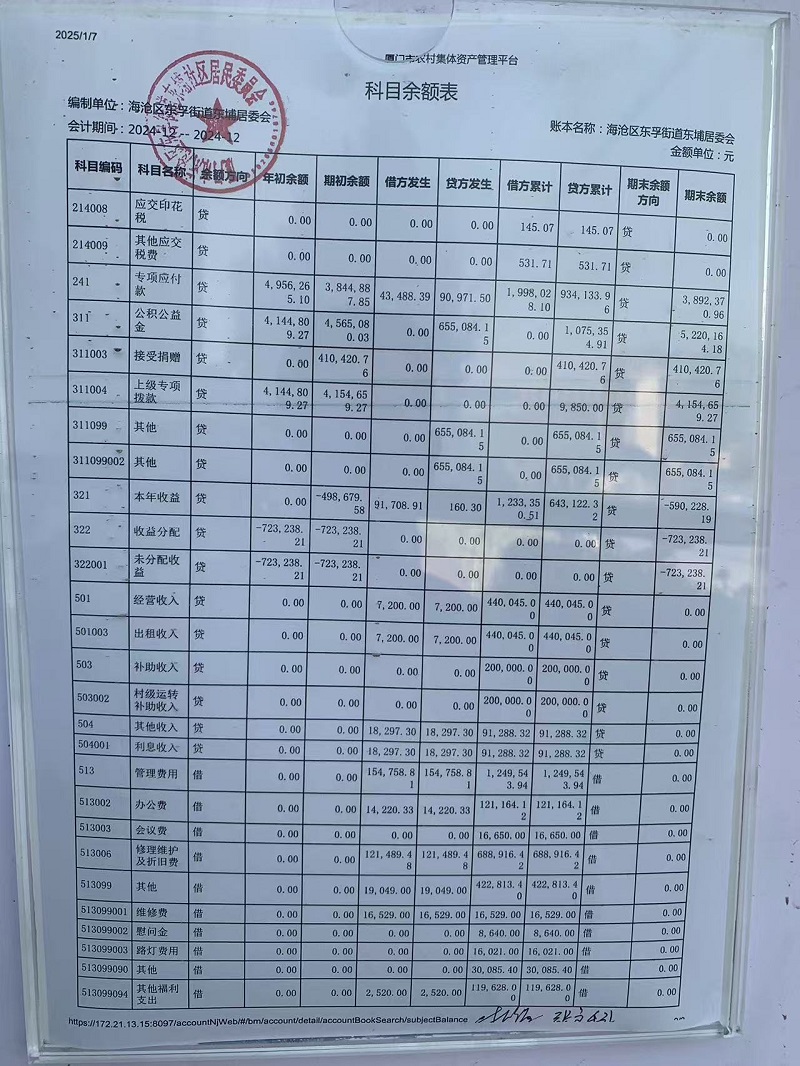 2025/1/7
厦门市农村集体资产管理平台
科目余额表
编制单位：海沧区东孚街道东埔居委会
会计期间：2024-12 -- 2024-12
账本名称：海沧区东孚街道东埔居委会
金额单位：元
科目编码 科目名称 余额方向 年初余额 期初余额 借方发生 贷方发生 借方累计 贷方累计 期末余额方向 期末余额
214008 应交印花税 贷 0.00 0.00 0.00 0.00 145.07 145.07 贷 0.00
214009 其他应交税费 贷 0.00 0.00 0.00 0.00 531.71 531.71 贷 0.00
241 专项应付款 贷 4,956,265.10 3,844,887.85 43,488.39 90,971.50 1,998,028.10 934,133.96 贷 3,892,370.96
311 公积公益金 贷 4,144,809.27 4,565,080.03 0.00 655,084.15 0.00 1,075,354.91 贷 5,220,164.18
311003 接受捐赠 贷 0.00 410,420.76 0.00 0.00 0.00 410,420.76 贷 410,420.76
311004 上级专项拨款 贷 4,144,809.27 4,154,659.27 0.00 0.00 0.00 9,850.00 贷 4,154,659.27
311099 其他 贷 0.00 0.00 0.00 655,084.15 0.00 655,084.15 贷 655,084.15
311099002 其他 贷 0.00 0.00 0.00 655,084.15 0.00 655,084.15 贷 655,084.15
321 本年收益 贷 0.00 -498,679.58 91,708.91 160.30 1,233,350.51 643,122.32 贷 -590,228.19
322 收益分配 贷 -723,238.21 -723,238.21 0.00 0.00 0.00 0.00 贷 -723,238.21
322001 未分配收益 贷 -723,238.21 -723,238.21 0.00 0.00 0.00 0.00 贷 -723,238.21
501 经营收入 贷 0.00 0.00 7,200.00 7,200.00 440,045.00 440,045.00 贷 0.00
501003 出租收入 贷 0.00 0.00 7,200.00 7,200.00 440,045.00 440,045.00 贷 0.00
503 补助收入 贷 0.00 0.00 0.00 0.00 200,000.00 200,000.00 贷 0.00
503002 村级运转补助收入 贷 0.00 0.00 0.00 0.00 200,000.00 200,000.00 贷 0.00
504 其他收入 贷 0.00 0.00 18,297.30 18,297.30 91,288.32 91,288.32 贷 0.00
504001 利息收入 贷 0.00 0.00 18,297.30 18,297.30 91,288.32 91,288.32 贷 0.00
513 管理费用 借 0.00 0.00 154,758.81 154,758.81 1,249,543.94 1,249,543.94 借 0.00
513002 办公费 借 0.00 0.00 14,220.33 14,220.33 121,164.12 121,164.12 借 0.00
513003 会议费 借 0.00 0.00 0.00 0.00 16,650.00 16,650.00 借 0.00
513006 修理维护及折旧费 借 0.00 0.00 121,489.48 121,489.48 688,916.42 688,916.42 借 0.00
513099 其他 借 0.00 0.00 19,049.00 19,049.00 422,813.40 422,813.40 借 0.00
513099001 维修费 借 0.00 0.00 16,529.00 16,529.00 16,529.00 16,529.00 借 0.00
513099002 慰问金 借 0.00 0.00 0.00 0.00 8,640.00 8,640.00 借 0.00
513099003 路灯费用 借 0.00 0.00 0.00 0.00 16,021.00 16,021.00 借 0.00
513099090 其他 借 0.00 0.00 0.00 0.00 30,085.40 30,085.40 借 0.00
513099094 其他福利支出 借 0.00 0.00 2,520.00 2,520.00 119,628.00 119,628.00 借 0.00
https://172.21.13.15:8097/accountNjWeb/#/bm/account/detail/accountBookSearch/subjectBalance